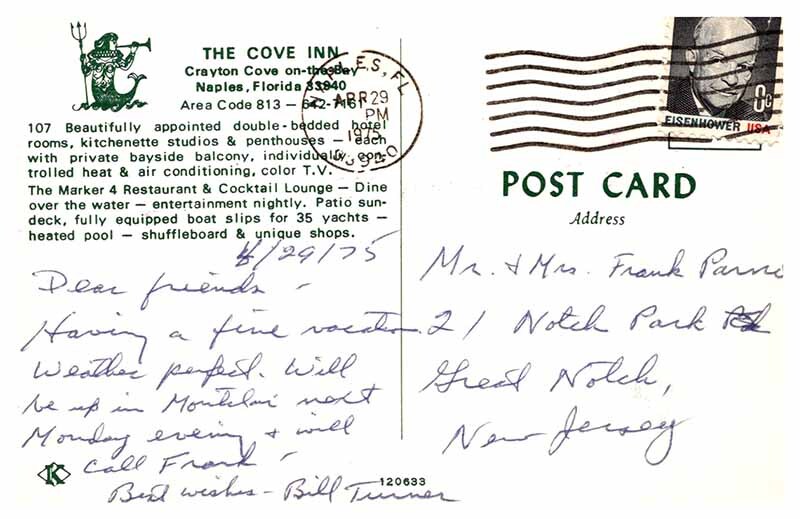 THE COVE INN
Crayton Cove on-the-Bay
Naples, Florida 33940
Area Code 813 — 642-7161
107 Beautifully appointed double-bedded hotel
rooms, kitchenette studios & penthouses — each
with private bayside balcony, individually con-
trolled heat & air conditioning, color T.V.
The Marker 4 Restaurant & Cocktail Lounge — Dine
over the water — entertainment nightly. Patio sun-
deck, fully equipped boat slips for 35 yachts —
heated pool — shuffleboard & unique shops.
4/29/75
Dear friends —
Having a fine vacation.
Weather perfect. Will
be up in Montclair next
Monday evening & will
call Frank —
Best wishes — Bill Turner
K
120633
NAPLES, FL
APR 29
PM
1975
33940
8c
EISENHOWER USA
POST CARD
Address
Mr. & Mrs. Frank
21 Notch Park Rd
Great Notch,
New Jersey